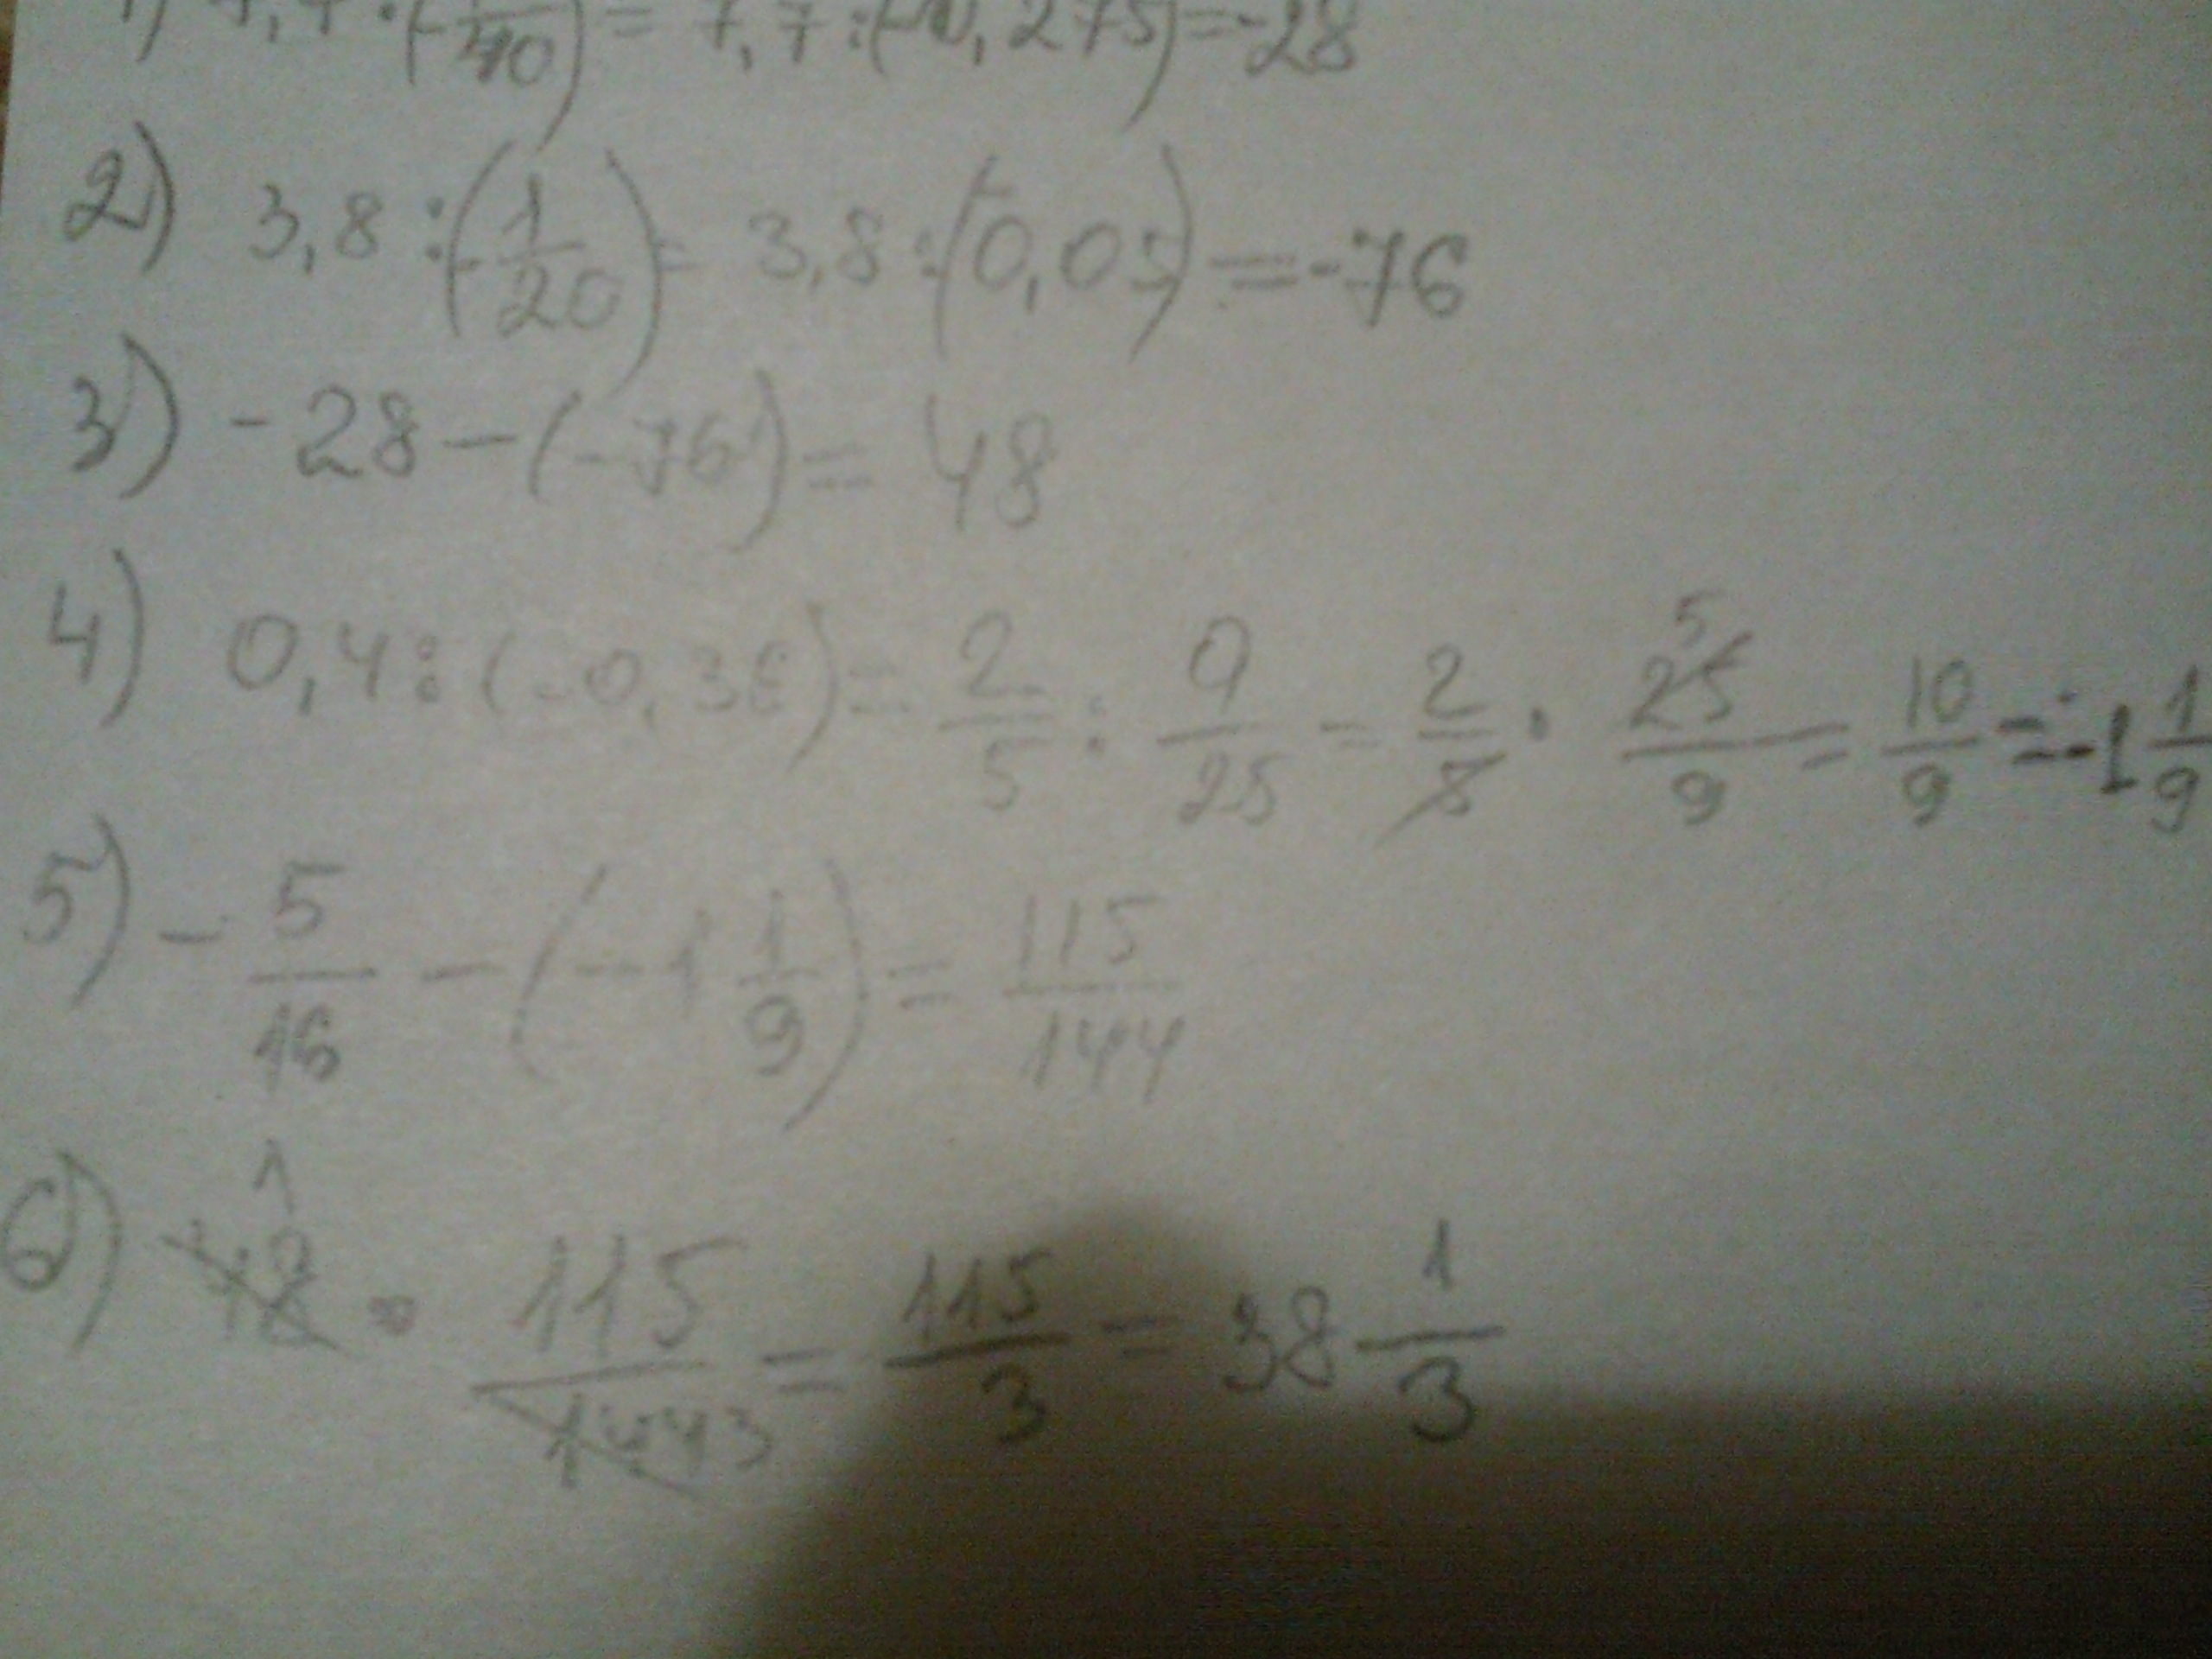 1) 7,7 : (- 11/40) = 7,7 : (-0,275) = -28
2) 3,8 : (- 1/20) = 3,8 : (-0,05) = -76
3) -28 - (-76) = 48
4) 0,4 : (-0,36) = 2/5 : 9/25 = 2/5 · 25/9 5 = 10/9 = -1 1/9
5) - 5/16 - (-1 1/9) = 115/144
6) 48 1 · 115/144 3 = 115/3 = 38 1/3